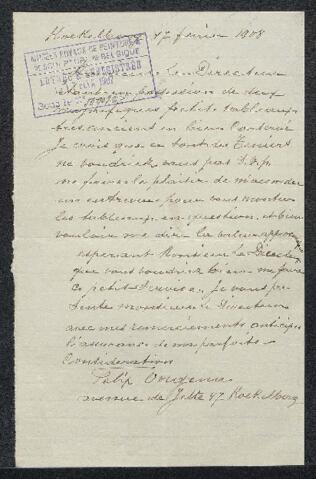 Koekelberg 17 février 1908
MUSÉES ROYAUX DE PEINTURE
ET DE SCULPTURE DE BELGIQUE
Monsieur le Directeur
étant en possession de deux
magnifiques petits tableaux
très anciens et bien conservé
Je crois que ce sont des Teniers
ne voudriez vous pas S.V.P.
me faire le plaisir de m'accorder
un entrevue, pour vous montrer
les tableaux en question, et bien
vouloir me dire la valeur
esperant Monsieur le Directeur
que vous voudrez bien me faire
ce petit service, je vous pré
sente monsieur le Directeur
avec mes remerciements anticipés
l'assurance de ma parfaite
Considération
avenue de Jette 47 Koekelberg